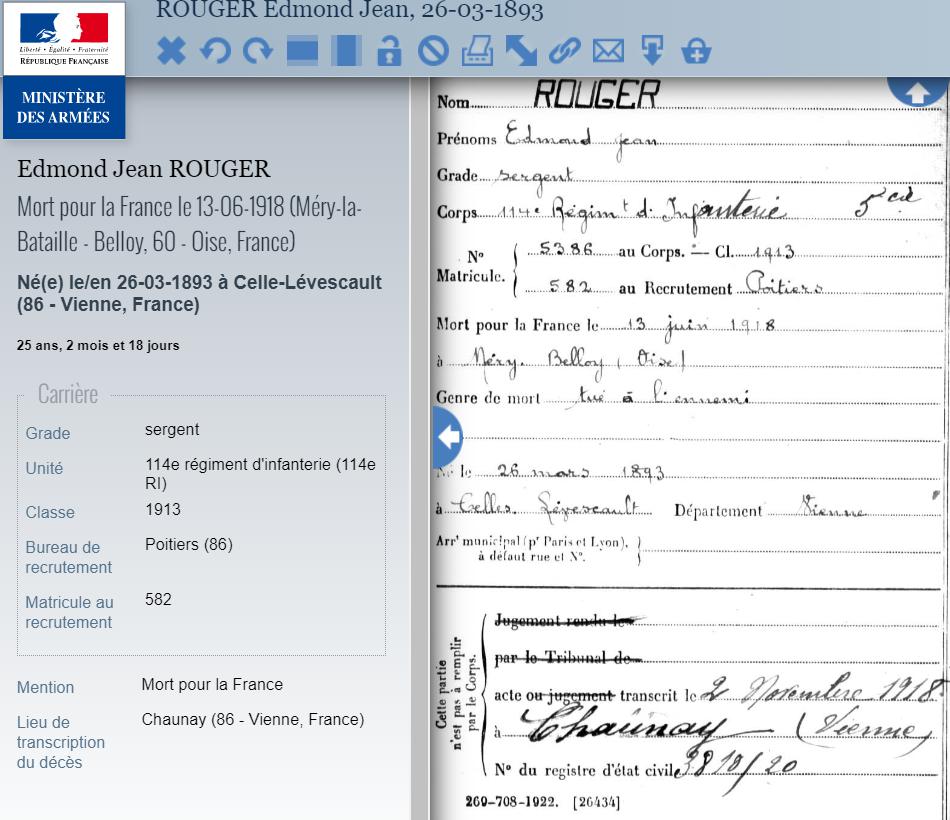 ROUGER Edmond Jean, 26-03-1893
Liberté • Égalité • Fraternité
RÉPUBLIQUE FRANÇAISE
MINISTÈRE
DES ARMÉES
Edmond Jean ROUGER
Mort pour la France le 13-06-1918 (Méry-la-
Bataille - Belloy, 60 - Oise, France)
Né(e) le/en 26-03-1893 à Celle-Lévescault
(86 - Vienne, France)
25 ans, 2 mois et 18 jours
Carrière
Grade sergent
Unité 114e régiment d'infanterie (114e
RI)
Classe 1913
Bureau de Poitiers (86)
recrutement
Matricule au 582
recrutement
Mention Mort pour la France
Lieu de Chaunay (86 - Vienne, France)
transcription
du décès
Nom ROUGER
Prénoms Edmond jean
Grade sergent
Corps 114e Régimt d'Infanterie 5 cie
N° Matricule. 5386 au Corps. — Cl. 1913
582 au Recrutement Poitiers
Mort pour la France le 13 juin 1918
à Méry. Belloy (Oise)
Genre de mort tué à l'ennemi
Né le 26 mars 1893
à Celles. Lévescault Département Vienne
Arrt municipal (pr Paris et Lyon),
à défaut rue et N°.
Cette partie
n'est pas à remplir
par le Corps.
Jugement rendu le
par le Tribunal de
acte ou jugement transcrit le 2 Novembre 1918
à Chaunay (Vienne)
N° du registre d'état civil 3818/20
269-708-1922. [26434]